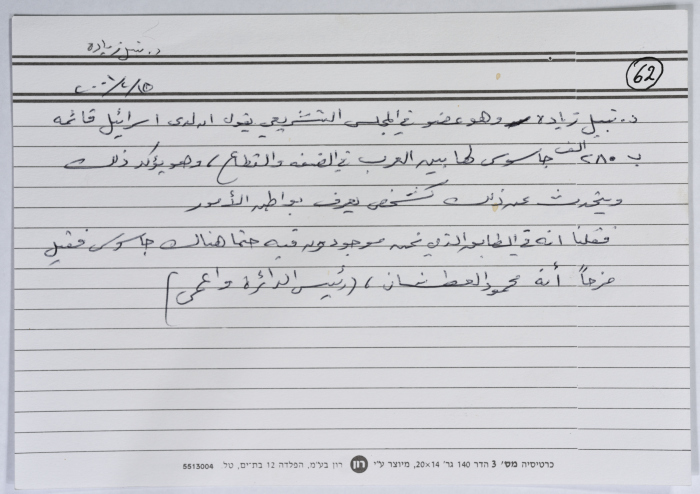 د. نبيل زياده
62
د. نبيل زياده وهو عضو في المجلس التشريعي يقول ان لدى اسرائيل قائمه
ب ٢٨٠ الف جاسوس لها بين العرب في الضفه والقطاع، وهو يؤكد ذلك
ويتحدث عن ذلك كشخص يعرف بواطن الأمور
فقلنا انه في الطابور الذي نحن موجودون فيه حتما هناك جاسوس فقيل
مزحاً أنه محمود العطشان، (رئيس الدائرة واعمى)
כרטיסיה מס' 3 הדר 140 גר' 14×20, מיוצר ע"י רון רון בע"מ, הפלדה 12 בת-ים, טל. 5513004